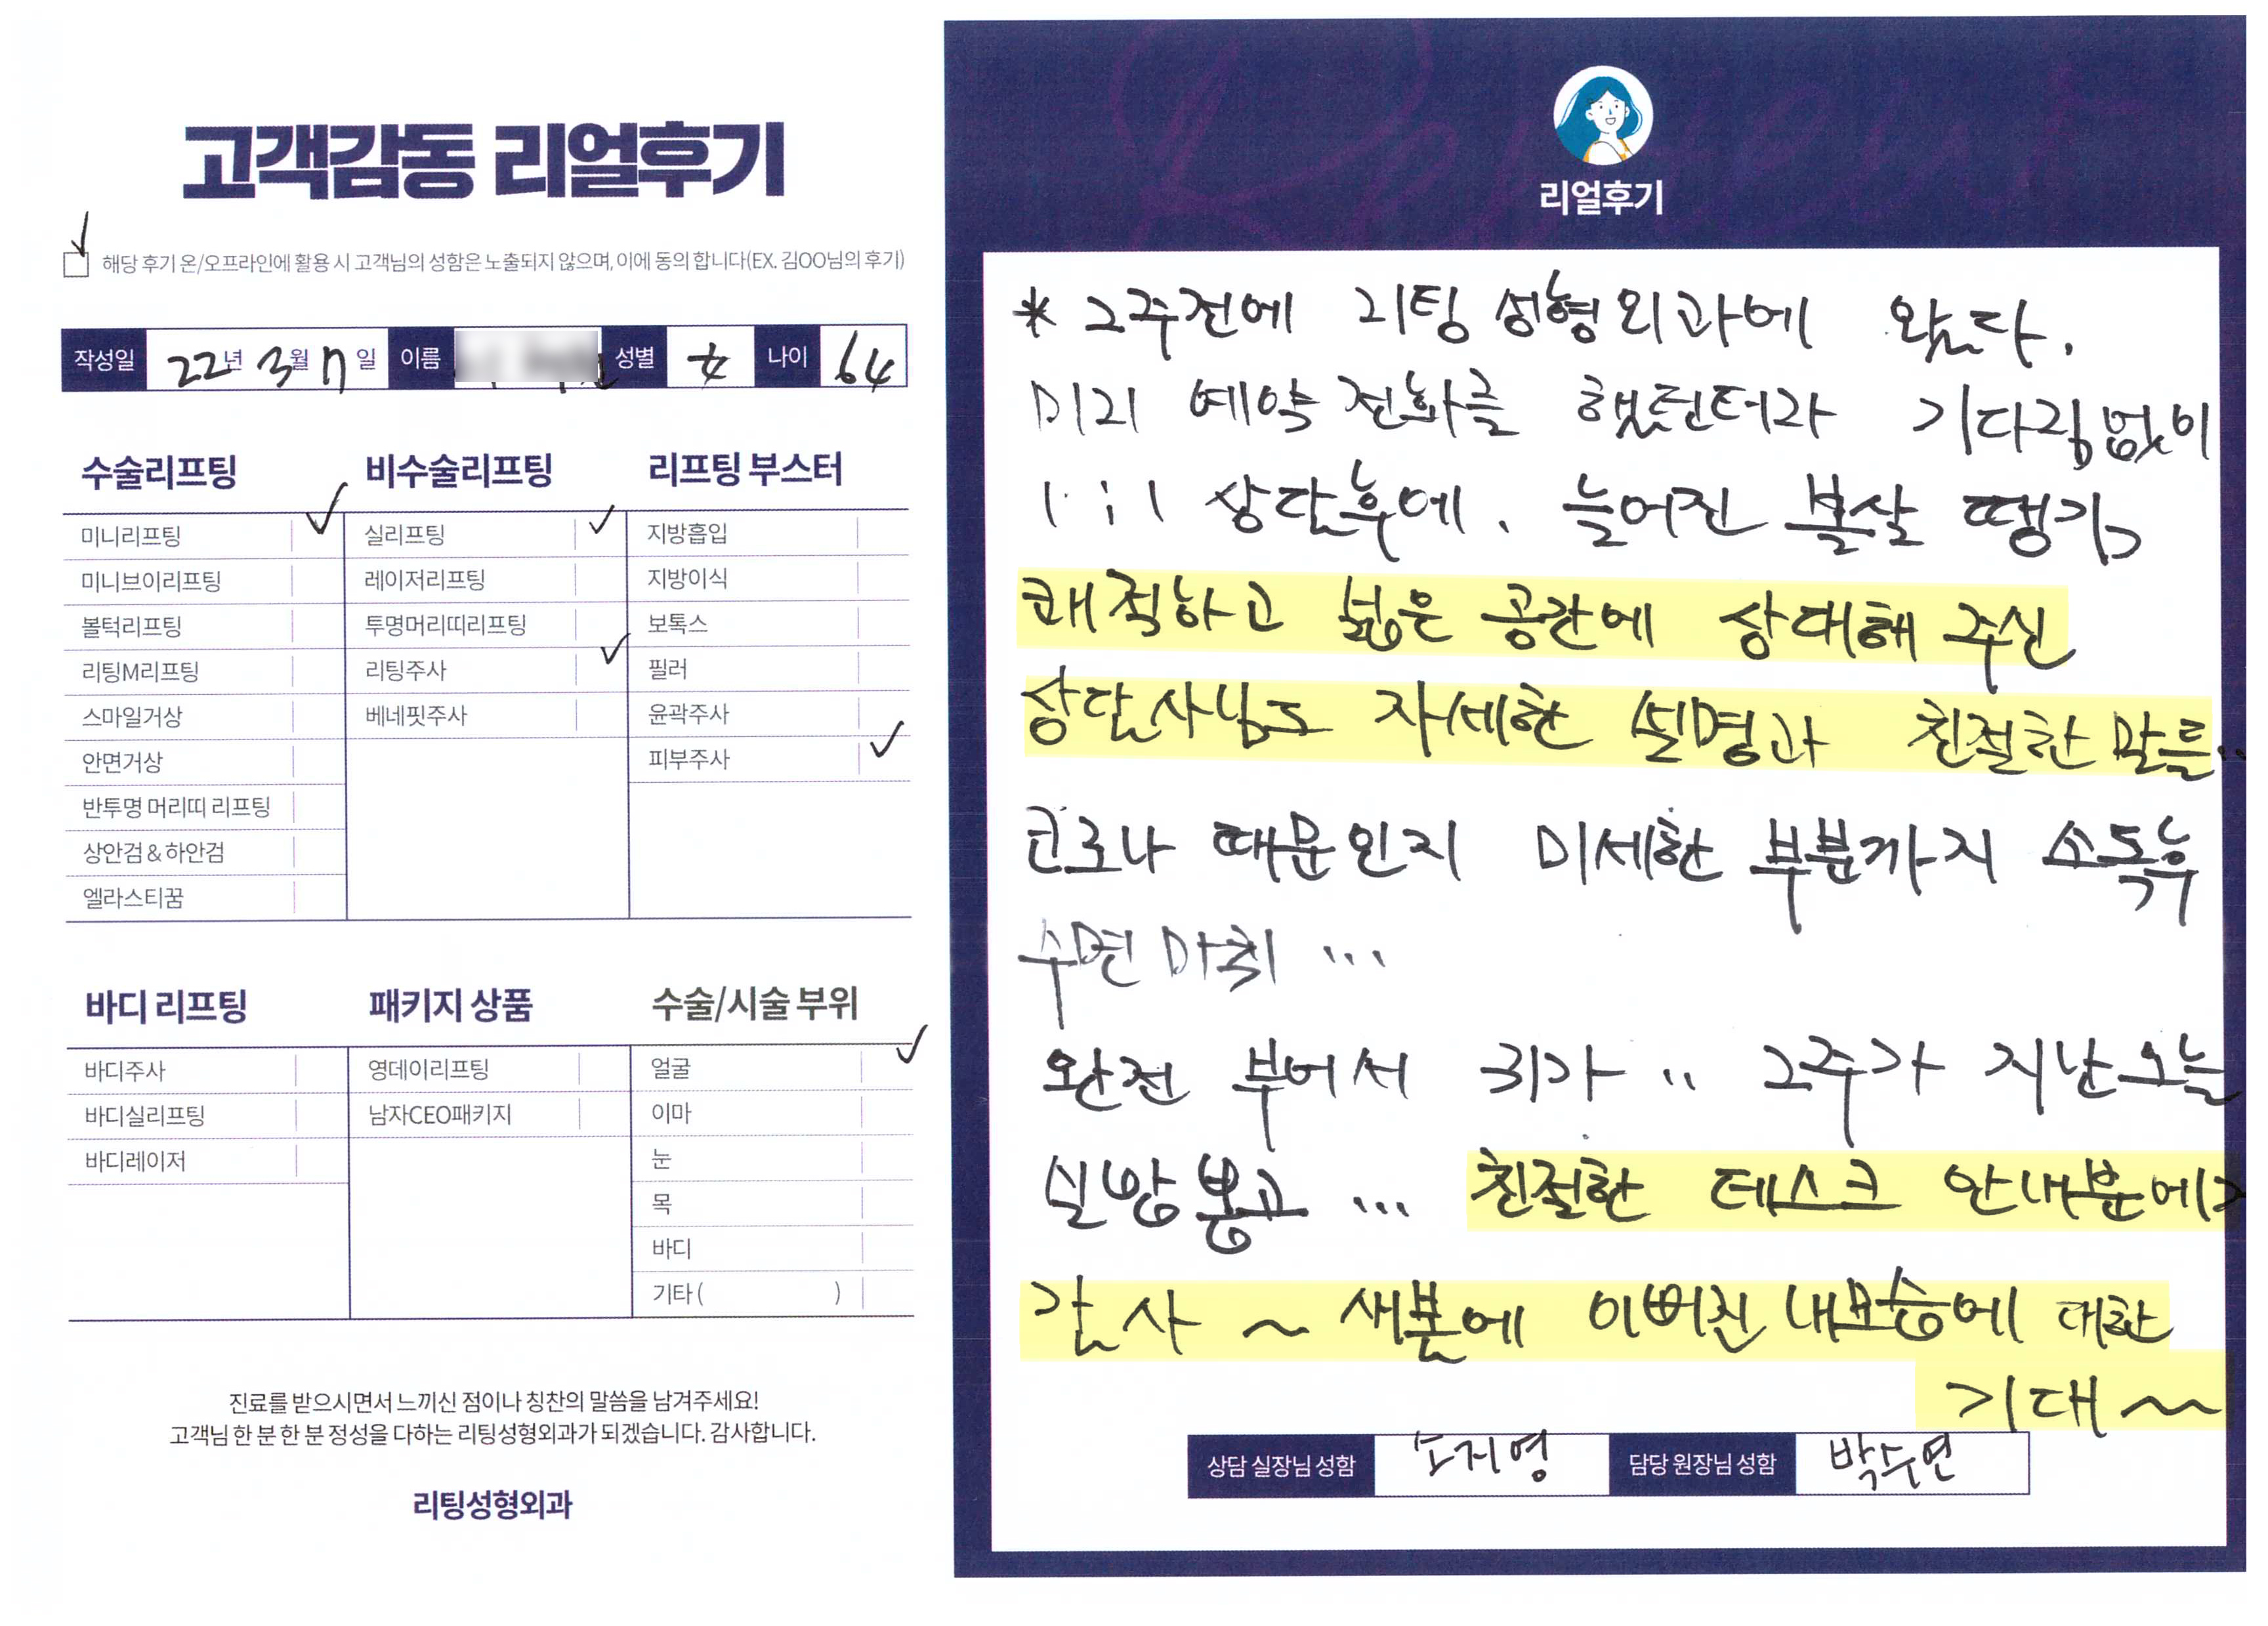 고객감동 리얼후기
해당 후기 온/오프라인에 활용 시 고객님의 성함은 노출되지 않으며, 이에 동의 합니다(EX. 김OO님의 후기)
작성일 22년 3월 17일 이름 성별 女 나이 64
수술리프팅
미니리프팅
미니브이리프팅
볼턱리프팅
리팅M리프팅
스마일거상
안면거상
반투명 머리띠 리프팅
상안검 & 하안검
엘라스티꿈
비수술리프팅
실리프팅
레이저리프팅
투명머리띠리프팅
리팅주사
베네핏주사
리프팅 부스터
지방흡입
지방이식
보톡스
필러
윤곽주사
피부주사
바디 리프팅
바디주사
바디실리프팅
바디레이저
패키지 상품
영데이리프팅
남자CEO패키지
수술/시술 부위
얼굴
이마
눈
목
바디
기타 ( )
진료를 받으시면서 느끼신 점이나 칭찬의 말씀을 남겨주세요!
고객님 한 분 한 분 정성을 다하는 리팅성형외과가 되겠습니다. 감사합니다.
리팅성형외과
리얼후기
* 2주전에 리팅 성형외과에 왔다.
미리 예약 전화를 했던터라 기다림없이
1:1 상담후에. 늘어진 볼살 땡기고
쾌적하고 넓은 공간에 상대해 주신
상담사님도 자세한 설명과 친절한 말투..
코로나 때문인지 미세한 부분까지 소독후
수면 마취 ...
완전 부어서 귀가 .. 2주가 지난 오늘
실밥뽑고 ... 친절한 데스크 안내분에게
감사 ~ 새봄에 이뻐진 내모습에 대한
기대 ~
상담 실장님 성함 지영 담당 원장님 성함 박수연